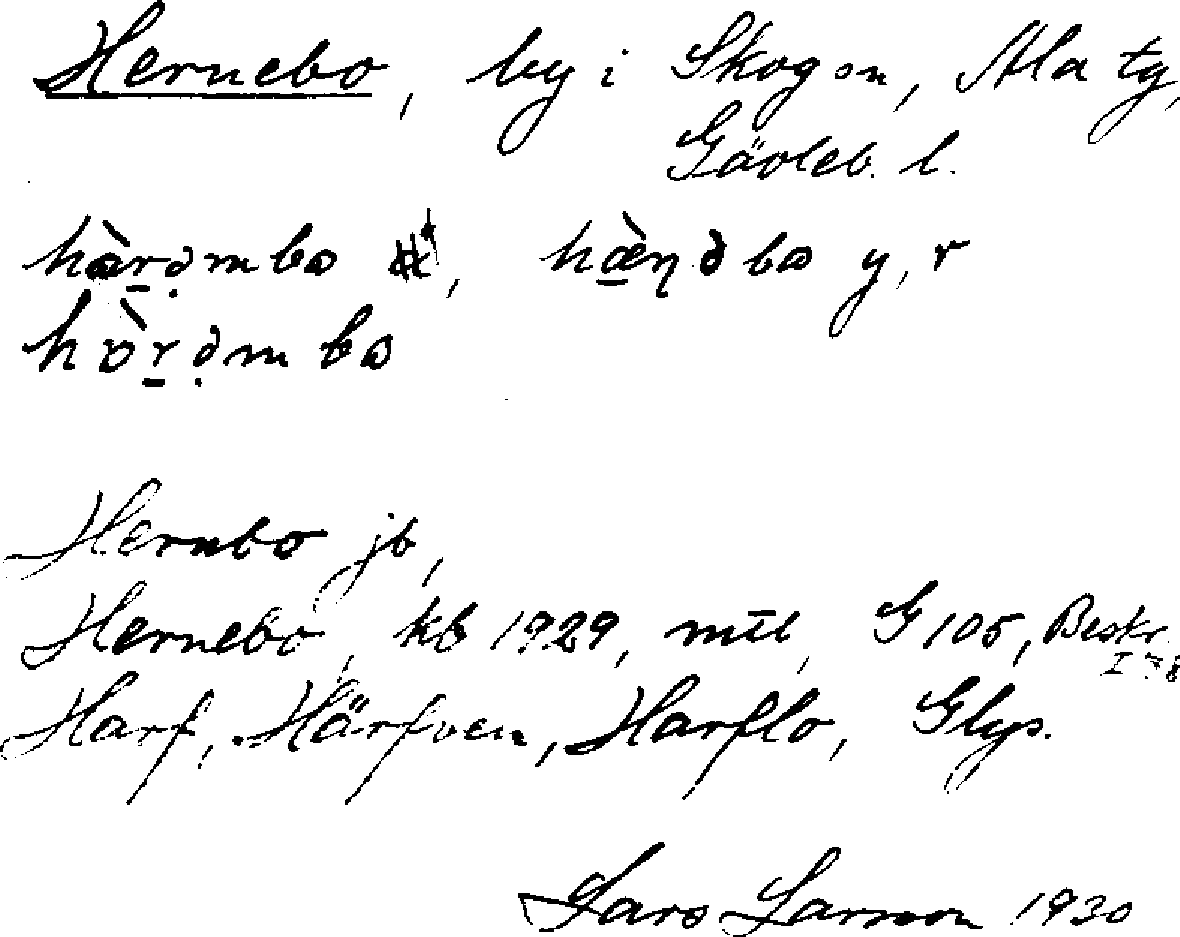 Hernebo, by i Skog sn, Ala tg,
Gävleb. l.
hàrəmbo, hæ̀ɳəbo y, r
hòrəmbo
Hernbo jb,
Hernebo, kb 1929, mtl, G 105, Beskr. I 78
Harf, Härfven, Harflo, Glys.
Lars Larsson 1930